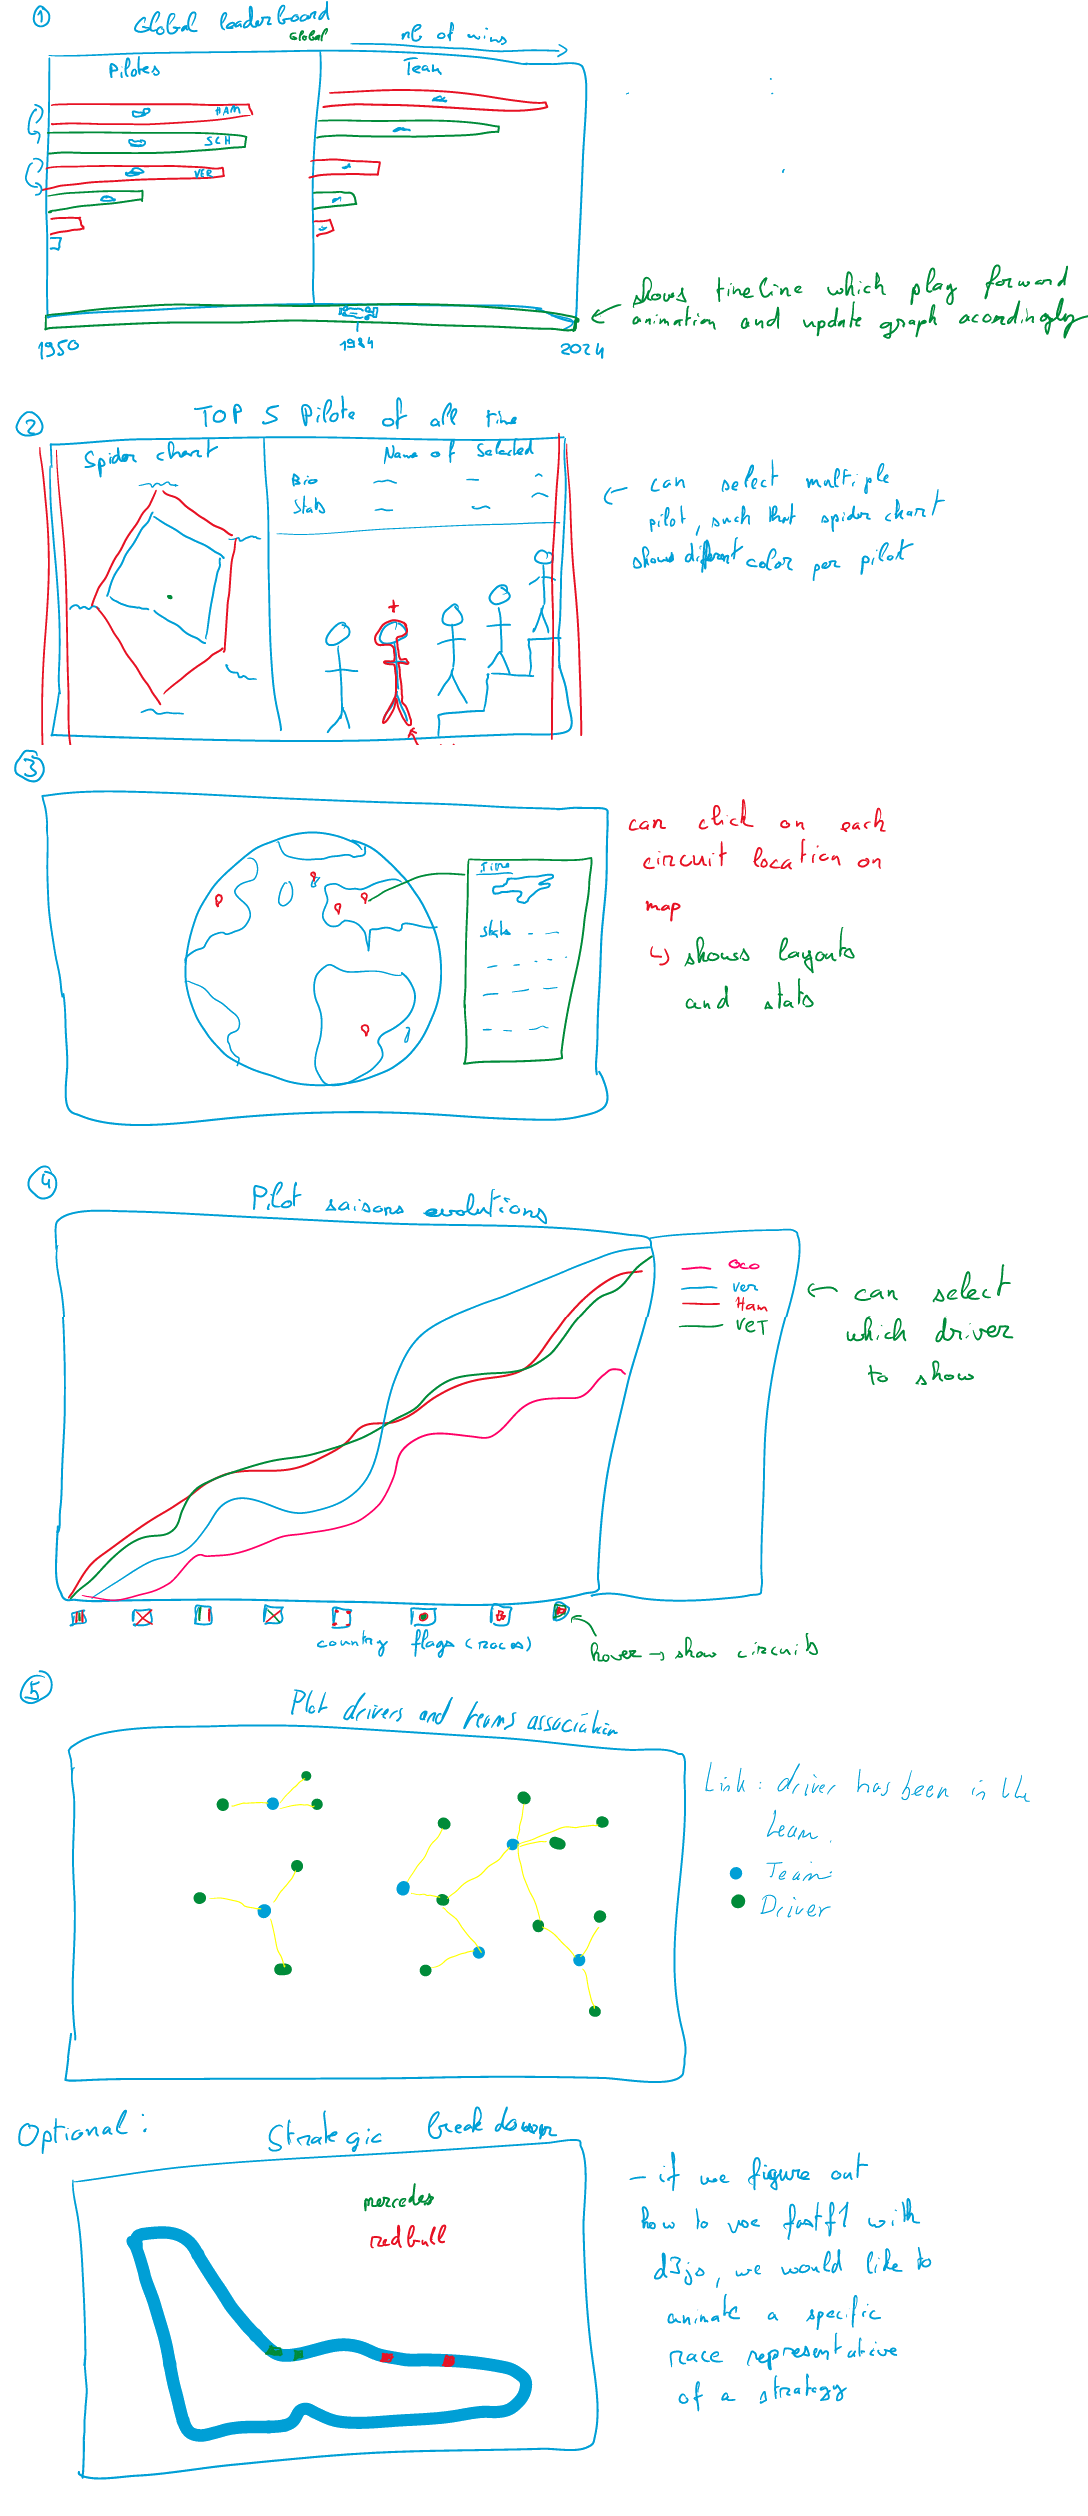 1
Global leaderboard
Global
nb of wins
Pilotes
Team
HAM
SCH
VER
shows timeline which play forward
animation and update graph acordingly
1950
1984
2024
2
TOP 5 Pilote of all time
Spider chart
Name of Selected
Bio
Stats
can select multiple
pilot, such that spider chart
shows different color per pilot
+
3
can click on each
circuit location on
map
shows layouts
and stats
Stats
4
Pilot saisons evolutions
Oco
Ver
Ham
VET
can select
which driver
to show
country flags (races)
hover → show circuits
5
Plot drivers and teams association
Link: driver has been in the
team.
Team
Driver
Optional:
Strategic breakdown
mercedes
redbull
- if we figure out
how to use fastf1 with
d3js, we would like to
animate a specific
race representative
of a strategy